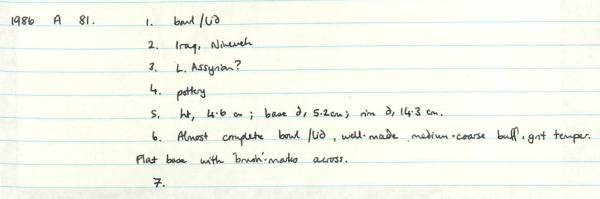 1986 A 81. 1. bowl/lid
2. Iraq, Nineveh
3. L. Assyrian?
4. pottery
5. ht, 4.6 cm; base d, 5.2cm; rim d, 14.3 cm.
6. Almost complete bowl/lid, well-made, medium-coarse buff, grit temper.
Flat base with 'brush'-marks across.
7.